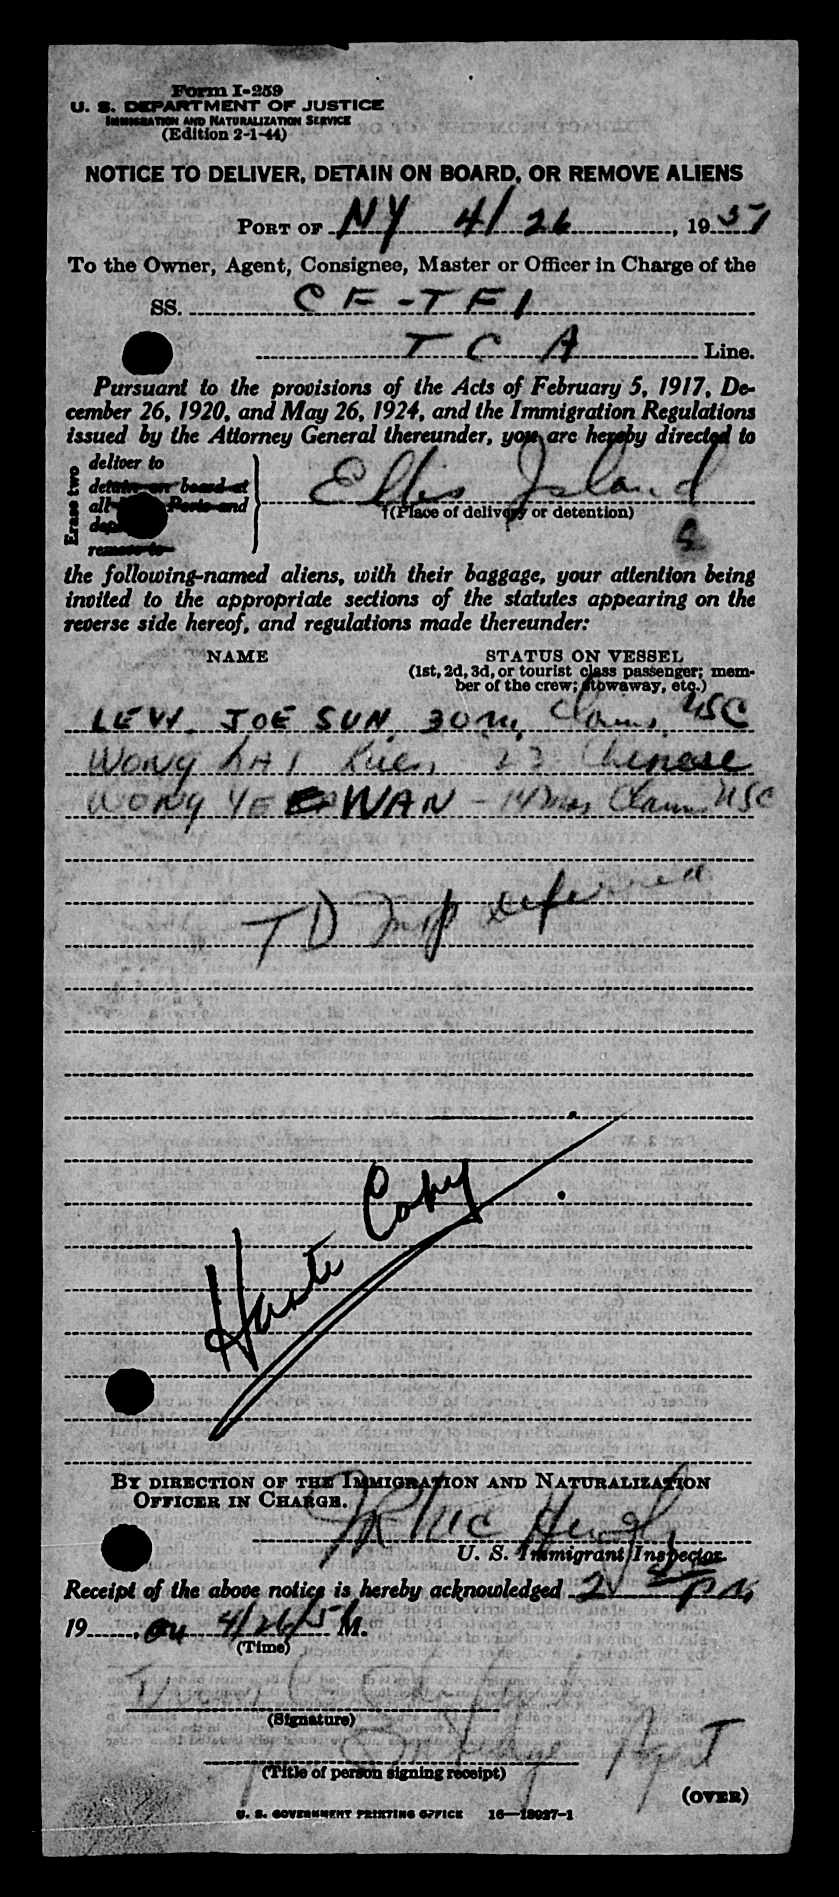 Form I-259
U. S. DEPARTMENT OF JUSTICE
IMMIGRATION AND NATURALIZATION SERVICE
(Edition 2-1-44)
NOTICE TO DELIVER, DETAIN ON BOARD, OR REMOVE ALIENS
PORT OF NY 4/26, 1951
To the Owner, Agent, Consignee, Master or Officer in Charge of the
SS. CF-TFI
TCA Line.
Pursuant to the provisions of the Acts of February 5, 1917, De-
cember 26, 1920, and May 26, 1924, and the Immigration Regulations
issued by the Attorney General thereunder, you are hereby directed to
Erase two
deliver to
detain on board at
all Ports and
remove to
Ellis Island
(Place of delivery or detention)
the following-named aliens, with their baggage, your attention being
invited to the appropriate sections of the statutes appearing on the
reverse side hereof, and regulations made thereunder:
NAME STATUS ON VESSEL
(1st, 2d, 3d, or tourist class passenger; mem-
ber of the crew; stowaway, etc.)
LEW JOE SUN 30 m, Claims USC
WONG LAI Chinese
WONG YEE WAN - 14 Claims USC
TD Insp deferred
Haste Copy
BY DIRECTION OF THE IMMIGRATION AND NATURALIZATION
OFFICER IN CHARGE.
U. S. Immigrant Inspector.
Receipt of the above notice is hereby acknowledged 2 PM
19 , on 4/26/51 M.
(Time)
(Signature)
Agent
(Title of person signing receipt)
(OVER)
U. S. GOVERNMENT PRINTING OFFICE 16—18027-1